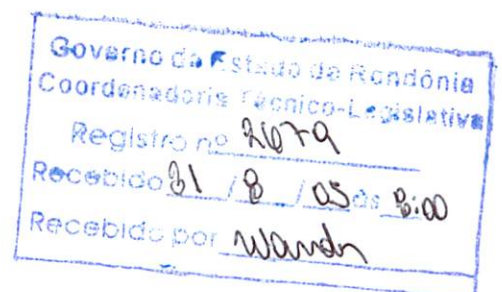 Governo do Estado de Rondônia
Coordenadoria Técnico-Legislativa
Registro nº 2679
Recebido 31 / 8 / 05 às 8:00
Recebido por